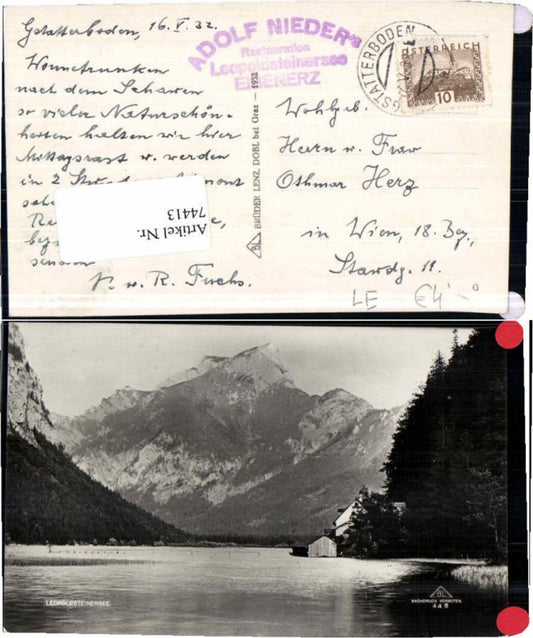 Gstatterboden, 16.V.32.
Wonnetrunken
nach dem Schauen
so vieler Naturschön-
heiten halten wir hier
Mittagsrast u. werden
in 2
P. u. R. Fuchs.
Artikel Nr.
74413
ADOLF NIEDER's
Restauration
Leopoldsteinersee
EISENERZ
BL BRÜDER LENZ DOBL bei Graz - 1932
GSTATTERBODEN
ÖSTERREICH
10
Wohlgeb.
Herrn u. Frau
Othmar Herz
in Wien, 18. Bez.,
11.
LE €4,-
LEOPOLDSTEINERSEE
BL
NACHDRUCK VERBOTEN.
446